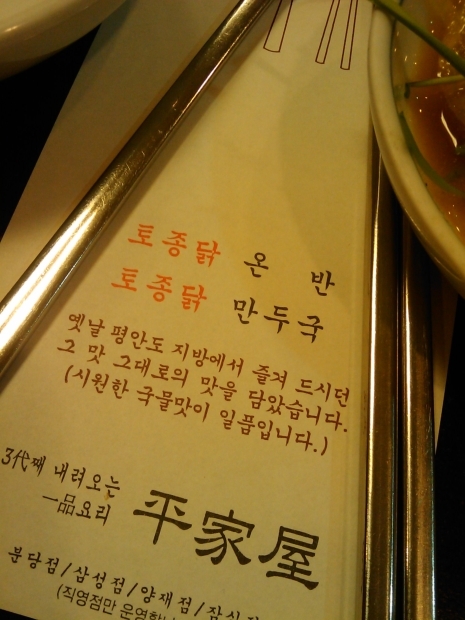 토종닭 온 반
토종닭 만두국
옛날 평안도 지방에서 즐겨 드시던
그 맛 그대로의 맛을 담았습니다.
(시원한 국물맛이 일품입니다.)
3代째 내려오는
一品요리
平家屋
분당점/삼성점/양재점/잠실
(직영점만 운영합니